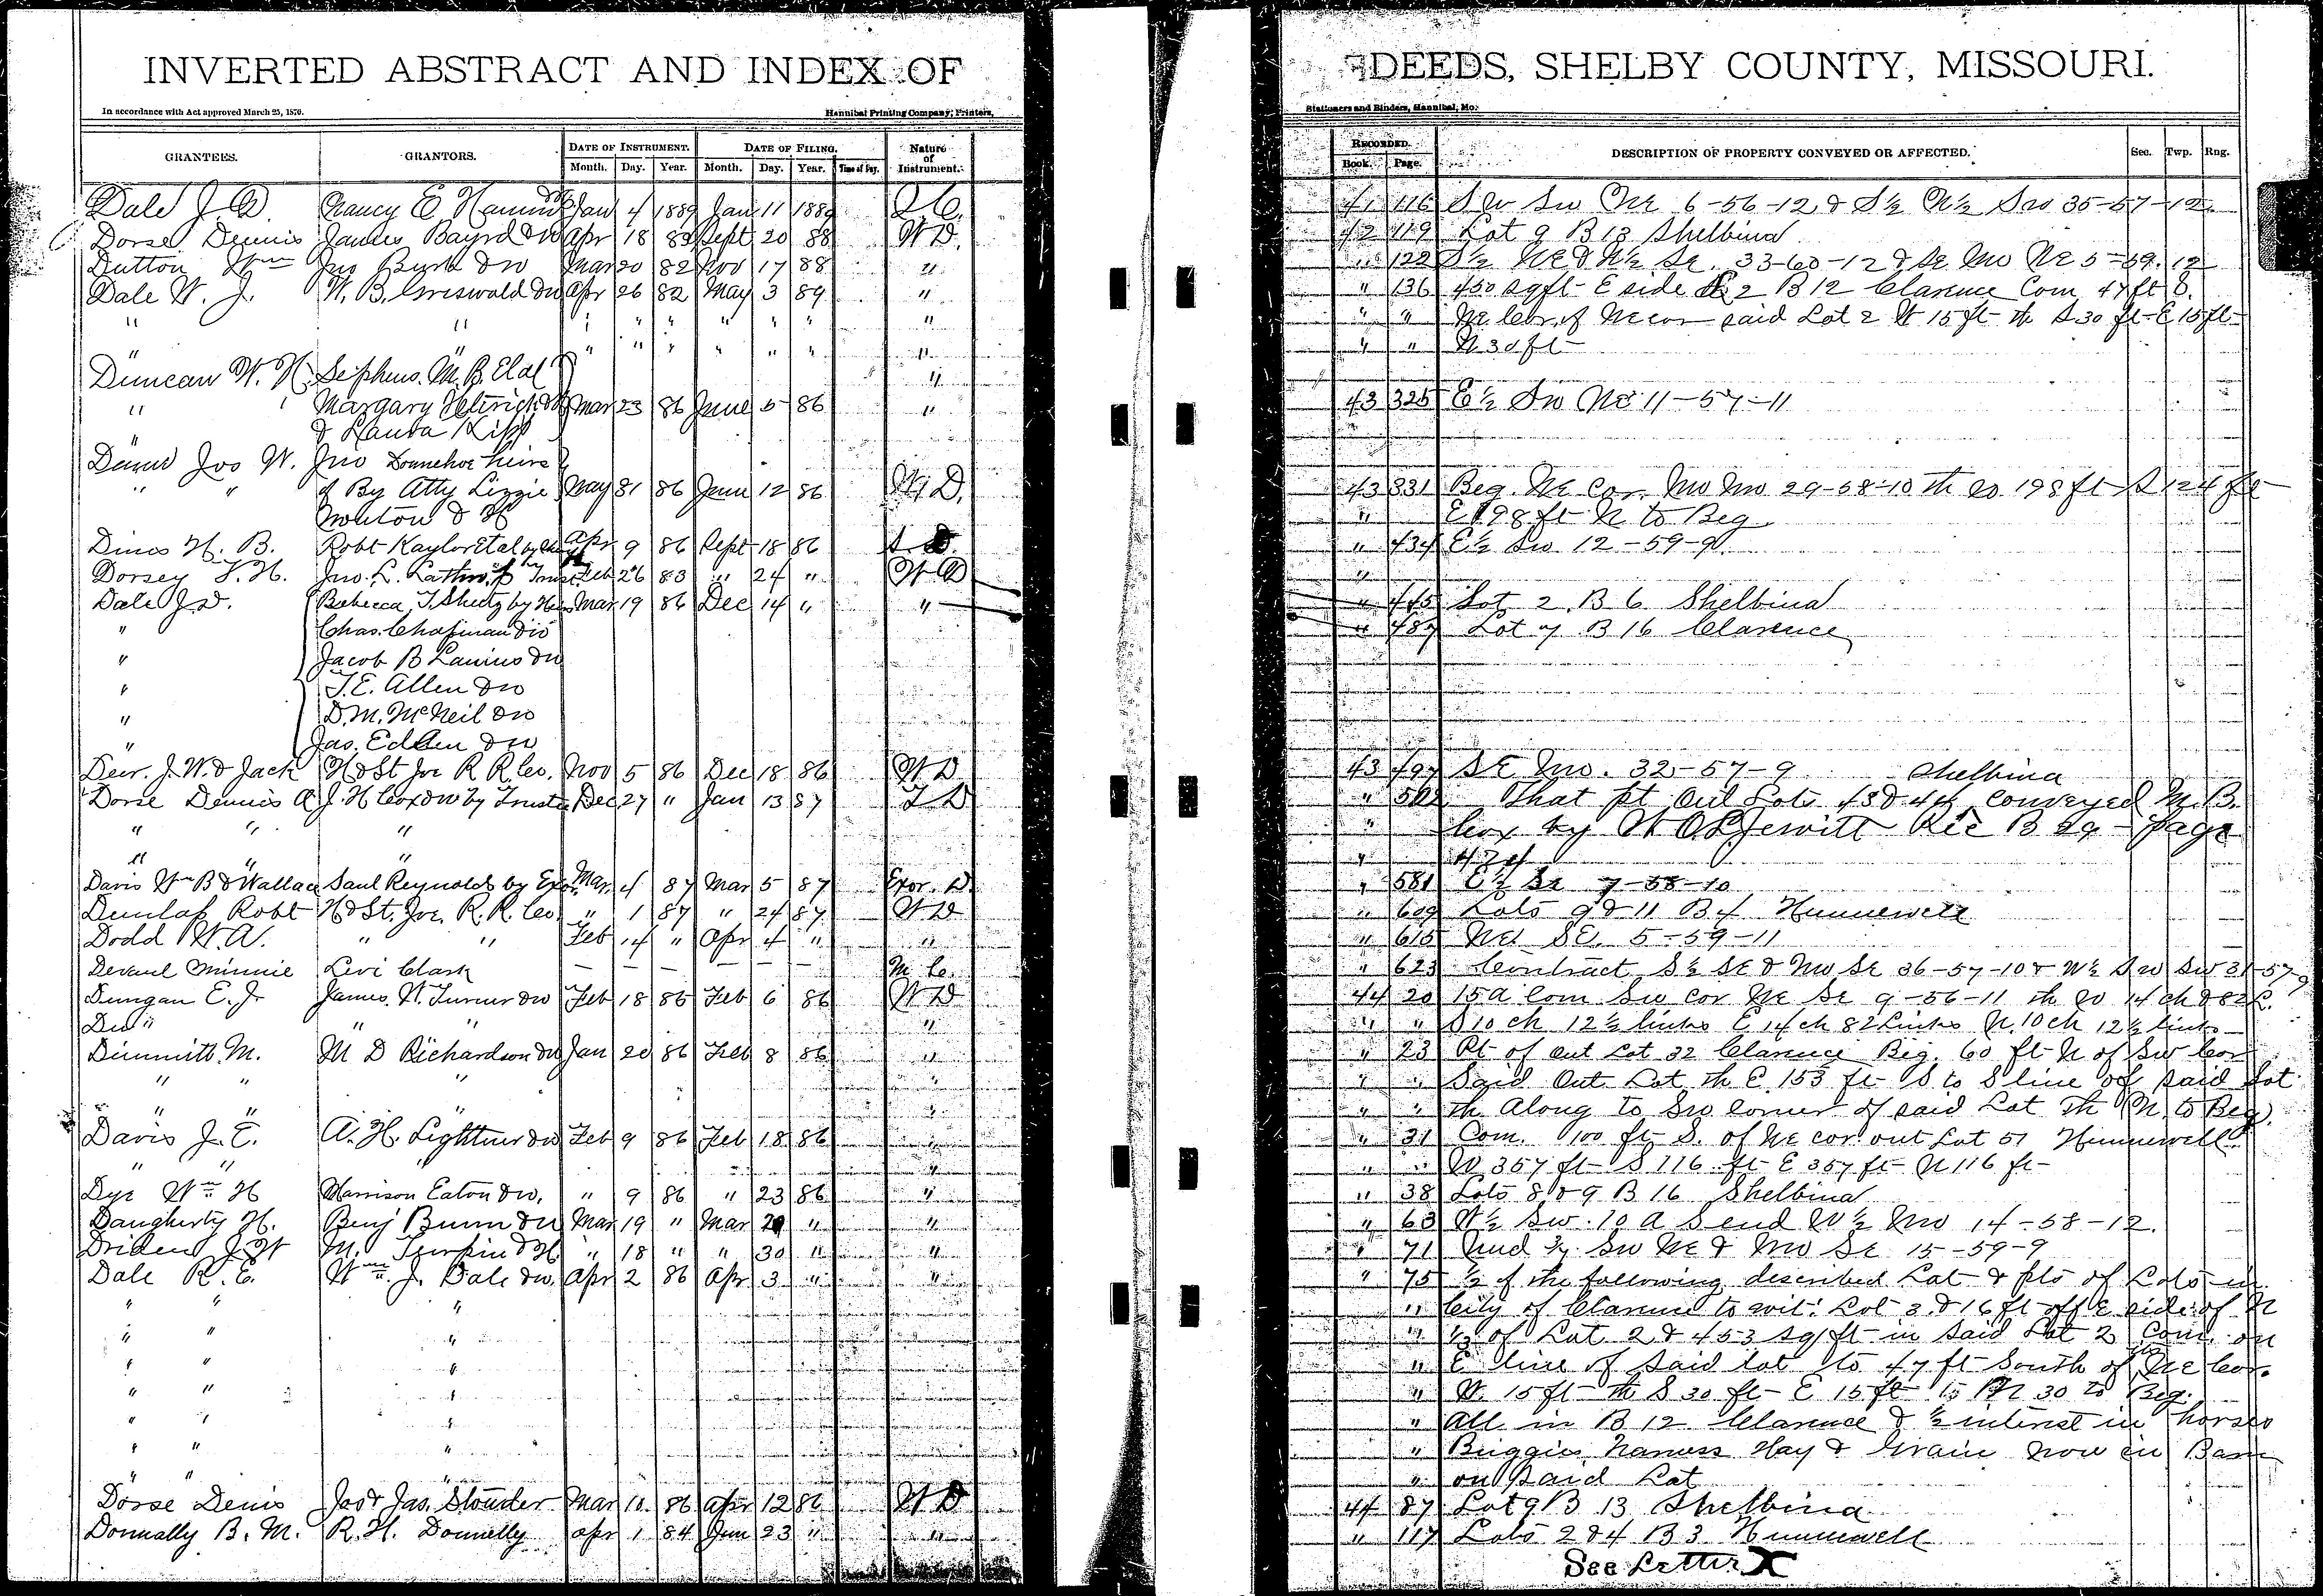 INVERTED ABSTRACT AND INDEX OF
In accordance with Act approved March 25, 1870.
Hannibal Printing Company, Printers,
GRANTEES. GRANTORS. DATE OF INSTRUMENT. DATE OF FILING. Nature of Instrument.
Month. Day. Year. Month. Day. Year. Time of Day.
Dale J. D. Nancy E. Jan 4 1889 Jan 11 1889 Q. C.
Dorse Dennis James Bayrd & W Apr 18 Sept 20 88 W D.
Dutton Wm Jno Byrd & W Mar 20 82 Nov 17 88 "
Dale W. J. W. B. Griswald & W Apr 26 82 May 3 89 "
" " " " " " " " "
" " " " " " " " "
Duncan W. H. Sephus. M. B. Etal "
" " Margary & H Mar 23 86 June 5 86 "
" & Laura Kipp
Jos W. Jno Donnehoe heirs
" " & By Atty Lizzie May 31 86 June 12 86 W D.
Nowton & H
Dines H. B. Robt Kaylor Etal by Apr 9 86 Sept 18 86 D.
Dorsey T. H. Jno. L. Lathrop Trust Feb 26 83 " 24 " W D
Dale J. D. Rebecca T. Sheetz by Mar 19 86 Dec 14 " "
" Chas. Chapman & W
" Jacob B Lanius & W
" T. E. Allen & W
" D. M. McNeil & W
" Jas. Edgen & W
J. W. & Jack H & St Joe R R Co. Nov 5 86 Dec 18 86 W D
Dorse Dennis A J. H Cox & W by Trustee Dec 27 " Jan 13 87 T D
" " "
" " "
Davis Wm B & Wallace Saul Reynolds by Exor Mar 4 87 Mar 5 87 Exor. D.
Dunlap Robt H & St. Joe. R. R. Co. " 1 87 " 24 87 W D
Dodd W. A. " " Feb 14 " Apr 4 " "
Devaul Minnie Levi Clark — — — — — M C.
Dungan E. J. James. W. Turner & W Feb 18 86 Feb 6 86 W D
Do " " " "
Dimmitt M. M D Richardson & W Jan 20 86 Feb 8 86 "
" " " "
" " " "
Davis J. E. A. H. Lightner & W Feb 9 86 Feb 18 86 "
" " " "
Dye Wm H Harrison Eaton & W. " 9 86 " 23 86 "
Daugherty H. Benj Bunn & W Mar 19 " Mar 29 " "
Driden J. W M. Turpin & H " 18 " " 30 " "
Dale R. E. Wm. J. Dale & W. Apr 2 86 Apr 3 " "
" " "
" " "
" " "
" " "
" " "
" " "
" " "
Dorse Denis Jas & Jas. Stouder Mar 10. 86 Apr 12 86 W D
Donnally B. M. R. H. Donnelly Apr 1 84 Jun 23 " "
DEEDS, SHELBY COUNTY, MISSOURI.
Stationers and Binders, Hannibal, Mo.
RECORDED. DESCRIPTION OF PROPERTY CONVEYED OR AFFECTED. Sec. Twp. Rng.
Book. Page.
41 116 S W Sw Ne 6-56-12 & S½ N½ Sw 35-57-12.
42 119 Lot 9 B 13 Shelbina
" 122 S½ NE & N½ Se. 33-60-12 & Se Nw Ne 5-59.12
" 136 450 sqft E side 2 B 12 Clarence Com 47 ft S.
" " Ne Cor. of Ne cor said Lot 2 W 15 ft th S 30 ft E 15 ft
" " N 30 ft
43 325 E½ Sw Ne 11-57-11
43 331 Beg. Ne Cor. Nw Nw 29-58-10 th W 198 ft S 124 ft
" E 198 ft N to Beg
" 434 E½ Sw 12-59-9
"
" 445 Lot 2 B 6 Shelbina
" 487 Lot 7 B 16 Clarence
43 497 SE Nw. 32-57-9 Shelbina
" That pt Out Lots 43 & 44 conveyed M. B.
" Cox by W. O. L. Jewitt Rec B 29 Page
" 424
" 581 E½ Se 7-58-10
" 609 Lots 9 & 11 B 4 Hunnewell
" 615 Ne SE. 5-59-11
" 623 Contract S½ SE & Nw Se 36-57-10 & W½ Sw Sw 31-57-9
44 20 15 a Com Sw Cor Ne Se 9-56-11 th W 14 ch & 82 L.
" " S 10 ch 12½ links E 14 ch 82 Links N. 10 ch 12½ links
" 23 Pt of Out Lot 32 Clarence Beg. 60 ft N of Sw Cor
" " Said Out Lot th E 153 ft S to S line of said Lot
" " th Along to Sw Corner of said Lot th N. to Beg.
" 31 Com. 100 ft S. of Ne cor out Lot 51 Hunnewell
" " W 357 ft S 116 ft E 357 ft N 116 ft
" 38 Lots 8 & 9 B 16 Shelbina
" 63 W½ Sw. 10 a S end W½ Nw 14-58-12.
" 71 Und Sw Ne & Nw Se 15-59-9
" 75 ½ of the following described Lot & pts of Lots in
" City of Clarence to wit: Lot 3 & 16 ft off E side of N
" ½ of Lot 2 & 453 sq ft in said Lot 2 Com. on
" E line of said lot 47 ft South of the Ne Cor.
" W. 15 ft th S 30 ft E 15 ft N 30 to Beg.
" All in B 12 Clarence & ½ interest in horses
" Buggies Harness Hay & Grain now in Barn
" on said Lot
44 87 Lot 9 B 13 Shelbina
" 117 Lots 2 & 4 B 3 Hunnewell
See Letter X